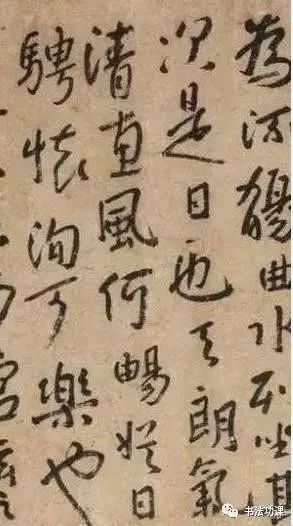 為流觴曲水列坐其
次是日也天朗氣
清惠風何暢娱日
騁懷洵可樂也
书法功课